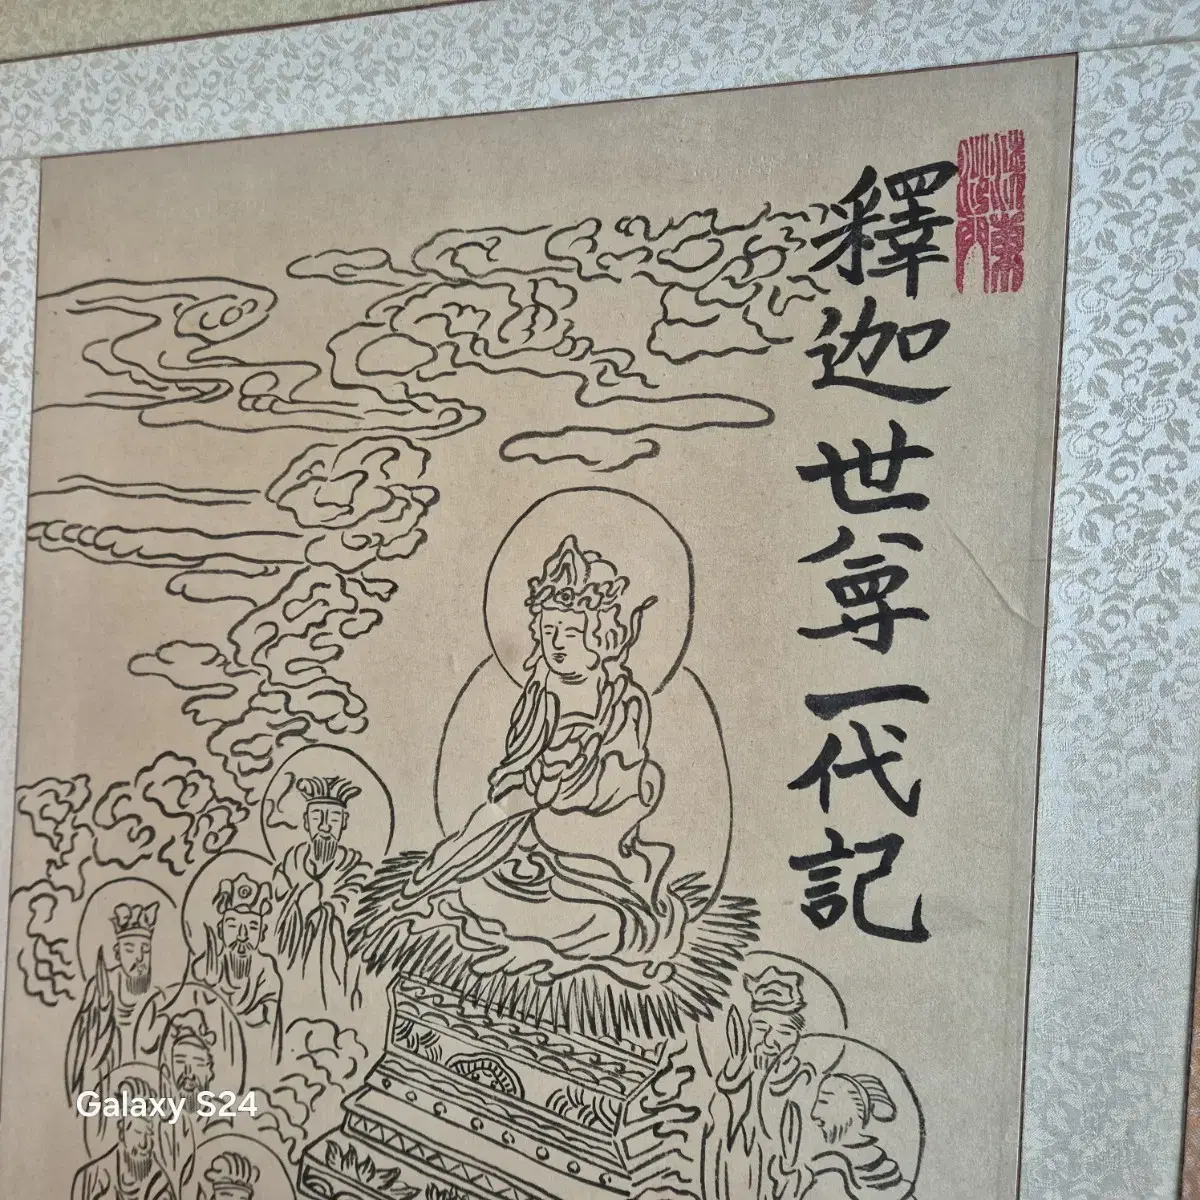 釋迦世尊一代記
Galaxy S24